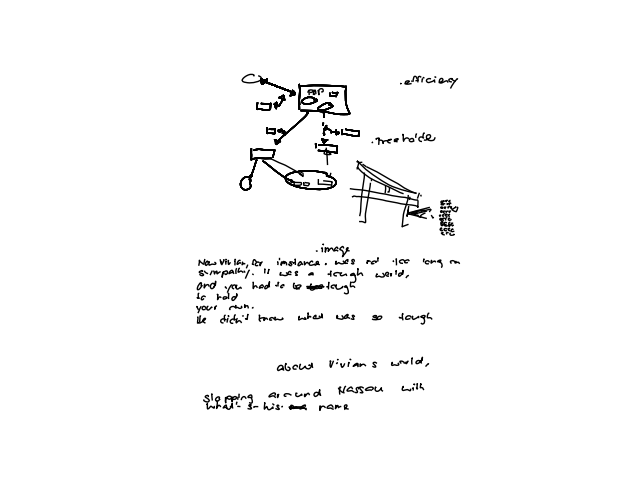 .efficiency
.image
Now Vivian, for instance. was not too long on
sympathy. It was a tough world,
and you had to be tough
to hold
your own.
He didn't know what was so tough
about Vivian's world,
slopping around Nassau with
what's-his- name